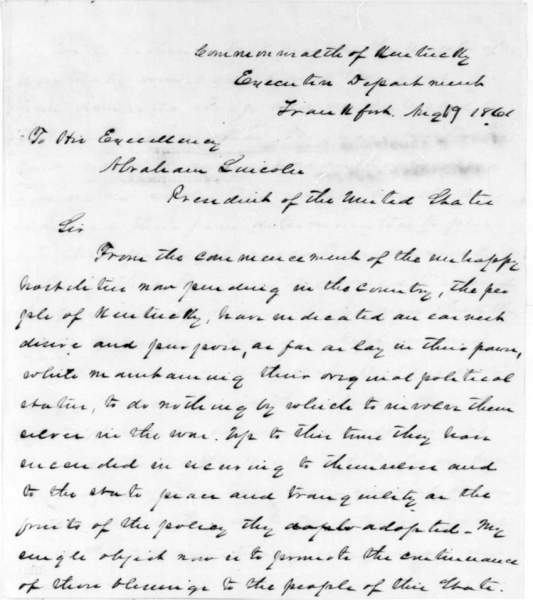 Commonwealth of Kentucky
Executive Department
Frankfort. Aug 19 1861
To His Excellency
Abraham Lincoln
President of the United States
Sir
From the commencement of the unhappy
hostilities now pending in the country, the peo
ple of Kentucky, have indicated an earnest
desire and purpose, as far as lay in their power,
while maintaining their original political
status, to do nothing by which to involve them
selves in the war. Up to this time they have
succeeded in securing to themselves and
to the state peace and tranquility as the
fruits of the policy they adopted – My
single object now is to promote the continuance
of those blessings to the people of this State.